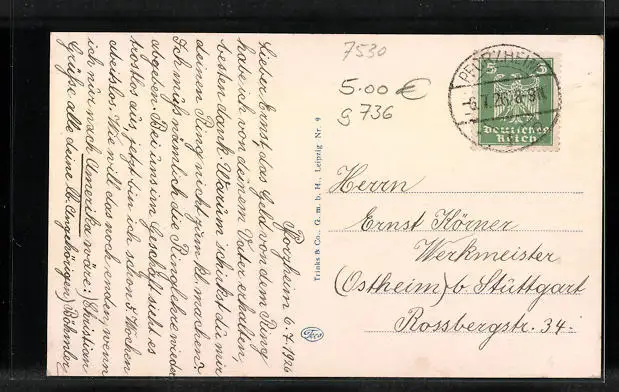 Pforzheim 6.7.1926
Lieber Ernst, das Geld von dem Ring
habe ich von deinem Vater erhalten,
besten Dank. Warum schickst du mir
deinen Ring nicht zum kl. machen?
Ich muß nämlich die Ringlehre wieder
abgeben. Bei uns im Geschäft sieht es
trostlos aus, jetzt bin ich schon 5 Wochen
arbeitslos. Wie will das noch enden, wenn
ich nur nach Amerika wäre. Christian
Grüße alle deine lb. Angehörigen) Böhmler
Trinks & Co., G. m. b. H., Leipzig Nr. 9
Trico
7530
5.00 €
g 736
PFORZHEIM
6.7.26.8-9N
5 5
Deutsches
Reich
Herrn
Ernst Körner
Werkmeister
(Ostheim) b Stuttgart
Rossbergstr. 34.